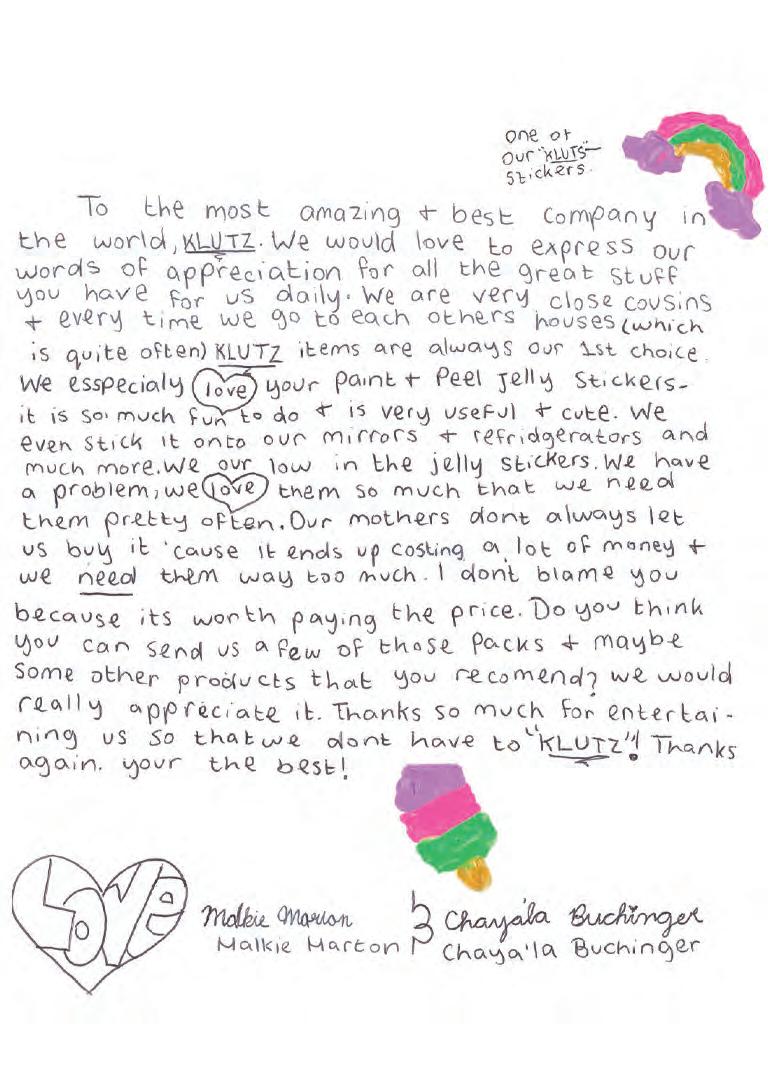 one of
our "KLUTS"
Stickers.
To the most amazing + best company in
the world, KLUTZ. We would love to express our
words of appreciation for all the great stuff
you have for us daily. We are very close cousins
+ every time we go to each others houses (which
is quite often) KLUTZ items are always our 1st choice.
We esspecialy love your Paint + Peel Jelly Stickers-
it is so much fun to do + is very useful + cute. We
even stick it onto our mirrors + refridgerators and
much more. We our low in the jelly stickers. We have
a problem, we love them so much that we need
them pretty often. Our mothers dont always let
us buy it 'cause it ends up costing a lot of money +
we need them way too much. I don't blame you
because its worth paying the price. Do you think
you can send us a few of those packs + maybe
some other products that you recomend? we would
really appreciate it. Thanks so much for entertai-
ning us so that we dont have to "KLUTZ"! Thanks
again. your the best!
LOVE
Malkie Marton & Chaya'la Buchinger
Malkie Marton Chaya'la Buchinger